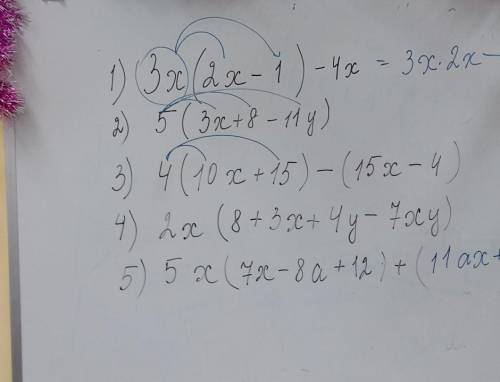 1) 3x(2x-1)-4x = 3x·2x-
2) 5(3x+8-11y)
3) 4(10x+15)-(15x-4)
4) 2x(8+3x+4y-7xy)
5) 5x(7x-8a+12)+(11ax+